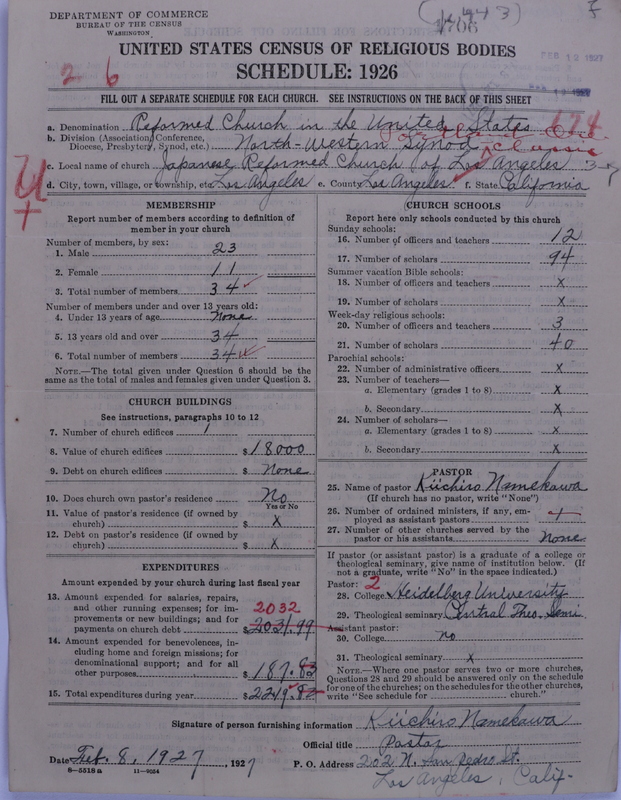 DEPARTMENT OF COMMERCE
BUREAU OF THE CENSUS
WASHINGTON
FEB 12 1927
UNITED STATES CENSUS OF RELIGIOUS BODIES
SCHEDULE: 1926
2 6
FILL OUT A SEPARATE SCHEDULE FOR EACH CHURCH. SEE INSTRUCTIONS ON THE BACK OF THIS SHEET
a. Denomination Reformed Church in the United States
b. Division (Association, Conference, Diocese, Presbytery, Synod, etc.) North-Western Synod
Classis
c. Local name of church Japanese Reformed Church of Los Angeles
d. City, town, village, or township, etc. Los Angeles e. County Los Angeles f. State California
MEMBERSHIP
Report number of members according to definition of
member in your church
Number of members, by sex:
1. Male 23
2. Female 11
3. Total number of members 34
Number of members under and over 13 years old:
4. Under 13 years of age None
5. 13 years old and over 34
6. Total number of members 34
NOTE.—The total given under Question 6 should be
same as the total of males and females given under Question 3.
CHURCH BUILDINGS
See instructions, paragraphs 10 to 12
7. Number of church edifices 1
8. Value of church edifices $ 18000
9. Debt on church edifices $ None
10. Does church own pastor's residence No
Yes or No
11. Value of pastor's residence (if owned by
church) $ X
12. Debt on pastor's residence (if owned by
church) $ X
EXPENDITURES
Amount expended by your church during last fiscal year
13. Amount expended for salaries, repairs,
and other running expenses; for im-
provements or new buildings; and for
payments on church debt $ 2031.99
2032
14. Amount expended for benevolences, in-
cluding home and foreign missions; for
denominational support; and for all
other purposes $ 187.83
15. Total expenditures during year $ 2219.82
CHURCH SCHOOLS
Report here only schools conducted by this church
Sunday schools:
16. Number of officers and teachers 12
17. Number of scholars 94
Summer vacation Bible schools:
18. Number of officers and teachers X
19. Number of scholars X
Week-day religious schools:
20. Number of officers and teachers 3
21. Number of scholars 40
Parochial schools:
22. Number of administrative officers X
23. Number of teachers—
a. Elementary (grades 1 to 8) X
b. Secondary X
24. Number of scholars—
a. Elementary (grades 1 to 8) X
b. Secondary X
PASTOR
25. Name of pastor Kiichiro Namekawa
(If church has no pastor, write "None")
26. Number of ordained ministers, if any, em-
ployed as assistant pastors
27. Number of other churches served by the
pastor or his assistants None
If pastor (or assistant pastor) is a graduate of a college or
theological seminary, give name of institution below. (If
not a graduate, write "No" in the space indicated.)
Pastor: 2
28. College Heidelberg University
29. Theological seminary Central Theo. Semi
Assistant pastor:
30. College no
31. Theological seminary X
NOTE.—Where one pastor serves two or more churches,
Questions 28 and 29 should be answered only on the schedule
for one of the churches; on the schedules for the other churches,
write "See schedule for church."
Signature of person furnishing information Kiichiro Namekawa
Official title Pastor
Date Feb. 8, 1927, 1927 P. O. Address 202 N. San Pedro St.
8—5518 a 11—9024
Los Angeles, Calif.